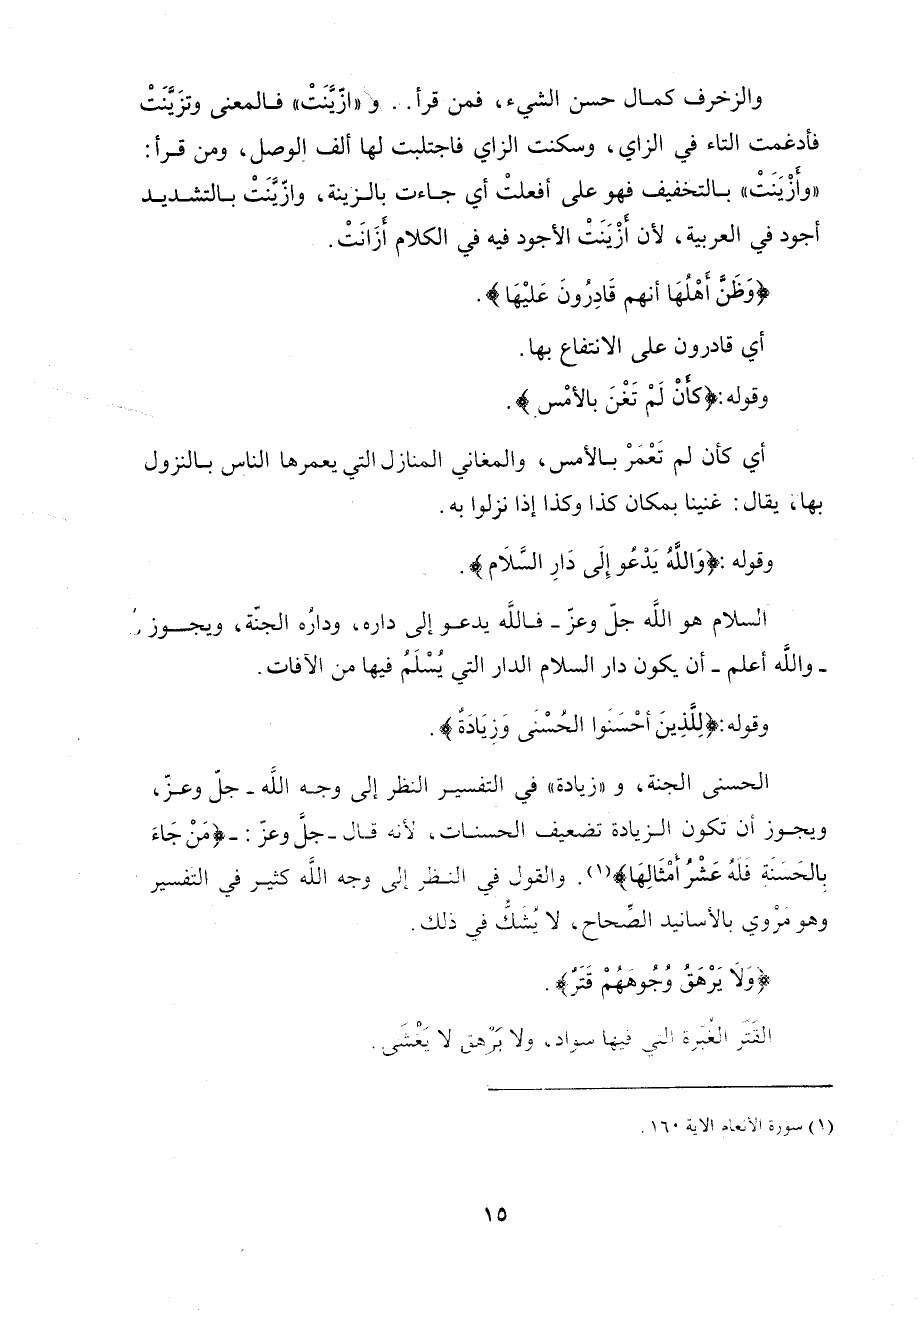 والزخرف كمال حسن الشيء، فمن قرأ.. و«ازَّيَّنَتْ» فالمعنى وتزَيَّنَتْ
فأدغمت التاء في الزاي، وسكنت الزاي فاجتلبت لها ألف الوصل، ومن قرأ:
«وأَزْيَنَتْ» بالتخفيف فهو على أفعلتْ أي جاءت بالزينة، وازَّيَّنَتْ بالتشديد
أجود في العربية، لأن أَزْيَنَتْ الأجود فيه في الكلام أَزَانَتْ.
﴿وَظَنَّ أَهْلُهَا أنهم قَادِرُونَ عَلَيْهَا﴾.
أي قادرون على الانتفاع بها.
وقوله:﴿كأَنْ لَمْ تَغْنَ بالأمْسِ﴾.
أي كأن لم تَعْمَرْ بالأمس، والمغاني المنازل التي يعمرها الناس بالنزول
بها، يقال: غنينا بمكان كذا وكذا إذا نزلوا به.
وقوله:﴿وَاللَّهُ يَدْعُو إِلَى دَارِ السَّلَام﴾.
السلام هو اللَّه جلّ وعزّ ـ فاللَّه يدعو إلى داره، ودارُه الجنّة، ويجوز
ـ واللَّه أعلم ـ أن يكون دار السلام الدار التي يُسْلَمُ فيها من الآفات.
وقوله:﴿لِلَّذِينَ أحْسَنُوا الحُسْنَى وَزِيَادَةٌ﴾.
الحسنى الجنة، و «زيادة» في التفسير النظر إلى وجه اللَّه ـ جلّ وعزّ،
ويجوز أن تكون الزيادة تضعيف الحسنات، لأنه قال ـ جلَّ وعزّ: ـ ﴿مَنْ جَاءَ
بالحَسَنَةِ فَلَهُ عَشْرُ أَمْثَالِهَا﴾(١). والقول في النظر إلى وجه اللَّه كثير في التفسير
وهو مَرْوي بالأسانيد الصِّحاح، لا يُشَكُّ في ذلك.
﴿وَلَا يَرْهَقُ وُجُوهَهُمْ قَتَرٌ﴾.
القَتَر الغُبَرة التي فيها سواد، ولا يَرْهق لا يَغْشَى.
(١) سورة الأنعام الآية ١٦٠.
١٥